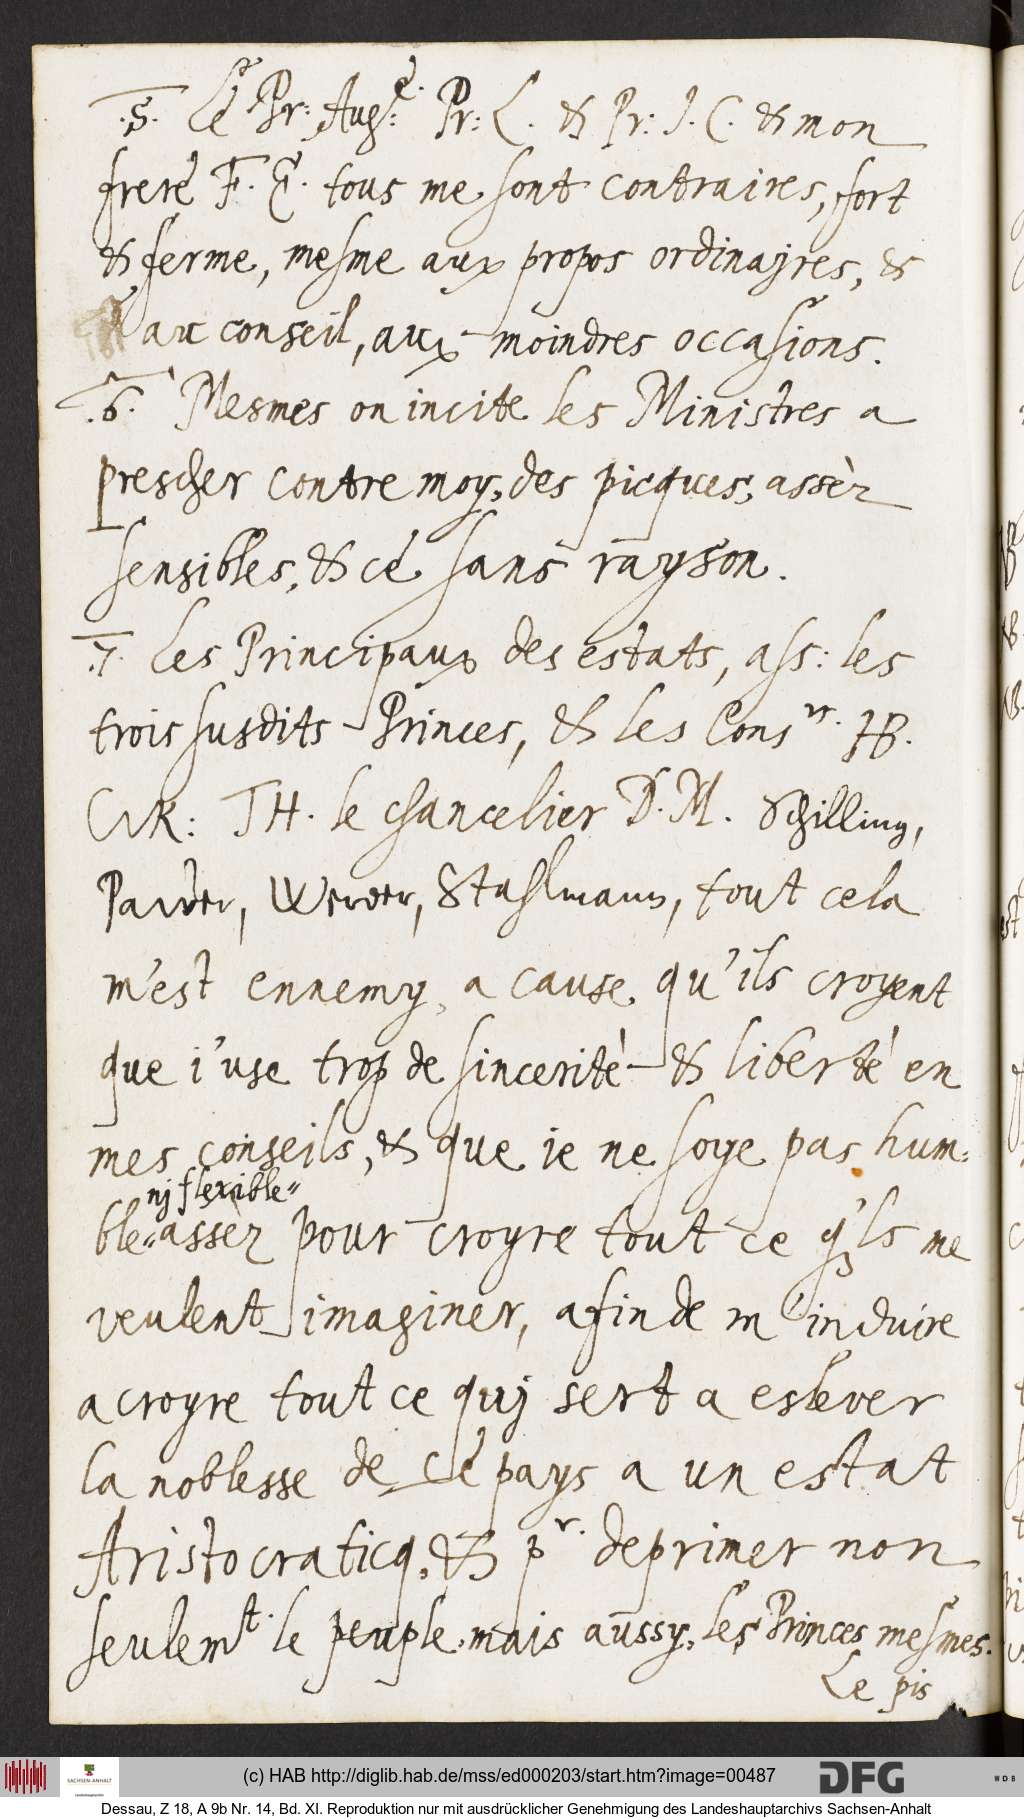 .5. Le Pr: Augs:e. Pr: L. & Pr: J. C. & mon
frere F. E. tous me sont contraires, fort
& ferme, mesme aux propos ordinajres, &
au conseil, aux moindres occasions.
.6. Mesmes on incite les Ministres a
prescher contre moy, des picques, assèz
sensibles, & cè sans rayson.
.7. Les Principaux des estats, ass: les
trois susdits Princes, & les Cons.rs HB.
CvK: TH. le chancelier D. M. Schilling,
Werder, Stuhlmann, tout cela
m'est ennemy, a cause qu'ils croyent
que i'use trop de sinceritè & liberté en
mes conseils, & que ie ne soye pas hum-
nj flexible"
ble" assez pour croyre tout ce q'ils me
veulent imaginer, afin de m'induire
a croyre tout ce quj sert a eslever
la noblesse de cè pays a un estat
Aristocraticq, & pr. deprimer non
seulemt. le peuple mais aussy, les Princes mesmes.
Le pis
(c) HAB http://diglib.hab.de/mss/ed000203/start.htm?image=00487
SACHSEN-ANHALT
DFG
WDB
Dessau, Z 18, A 9b Nr. 14, Bd. XI. Reproduktion nur mit ausdrücklicher Genehmigung des Landeshauptarchivs Sachsen-Anhalt